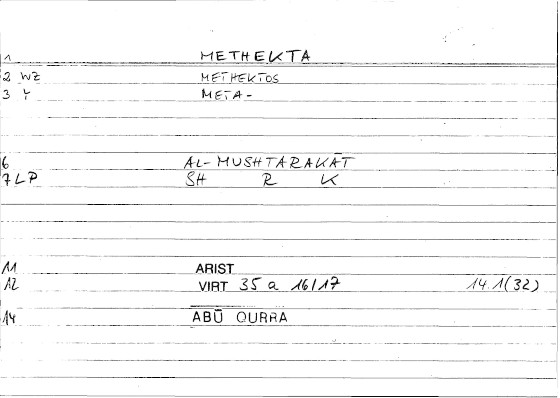 1 METHEKTA
2 WZ METHEKTOS
3 META-
6 AL-MUSHTARAKĀT
7 LP SH R K
11 ARIST
12 VIRT 35 a 16/17 14.1(32)
14 ABŪ QURRA